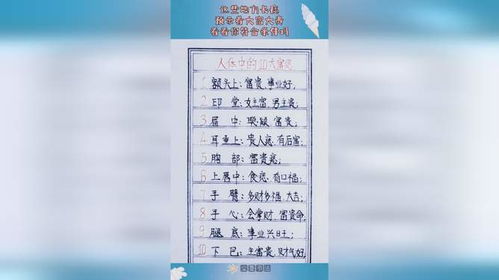 这些地方长痣
预示着大富大贵
看看你符合条件吗
人体中的10大富痣
1 额头上：富贵、事业好；
2 印堂：女主富、男主贵；
3 眉中：聪颖、富贵；
4 耳垂上：贵人痣、有后富；
5 胸部：富贵痣；
6 上唇中：食痣、有口福；
7 手臂：多财多福、大吉；
8 手心：会拿财、富贵命；
9 腿底：事业兴旺；
10 下巴：主富贵、财气好；